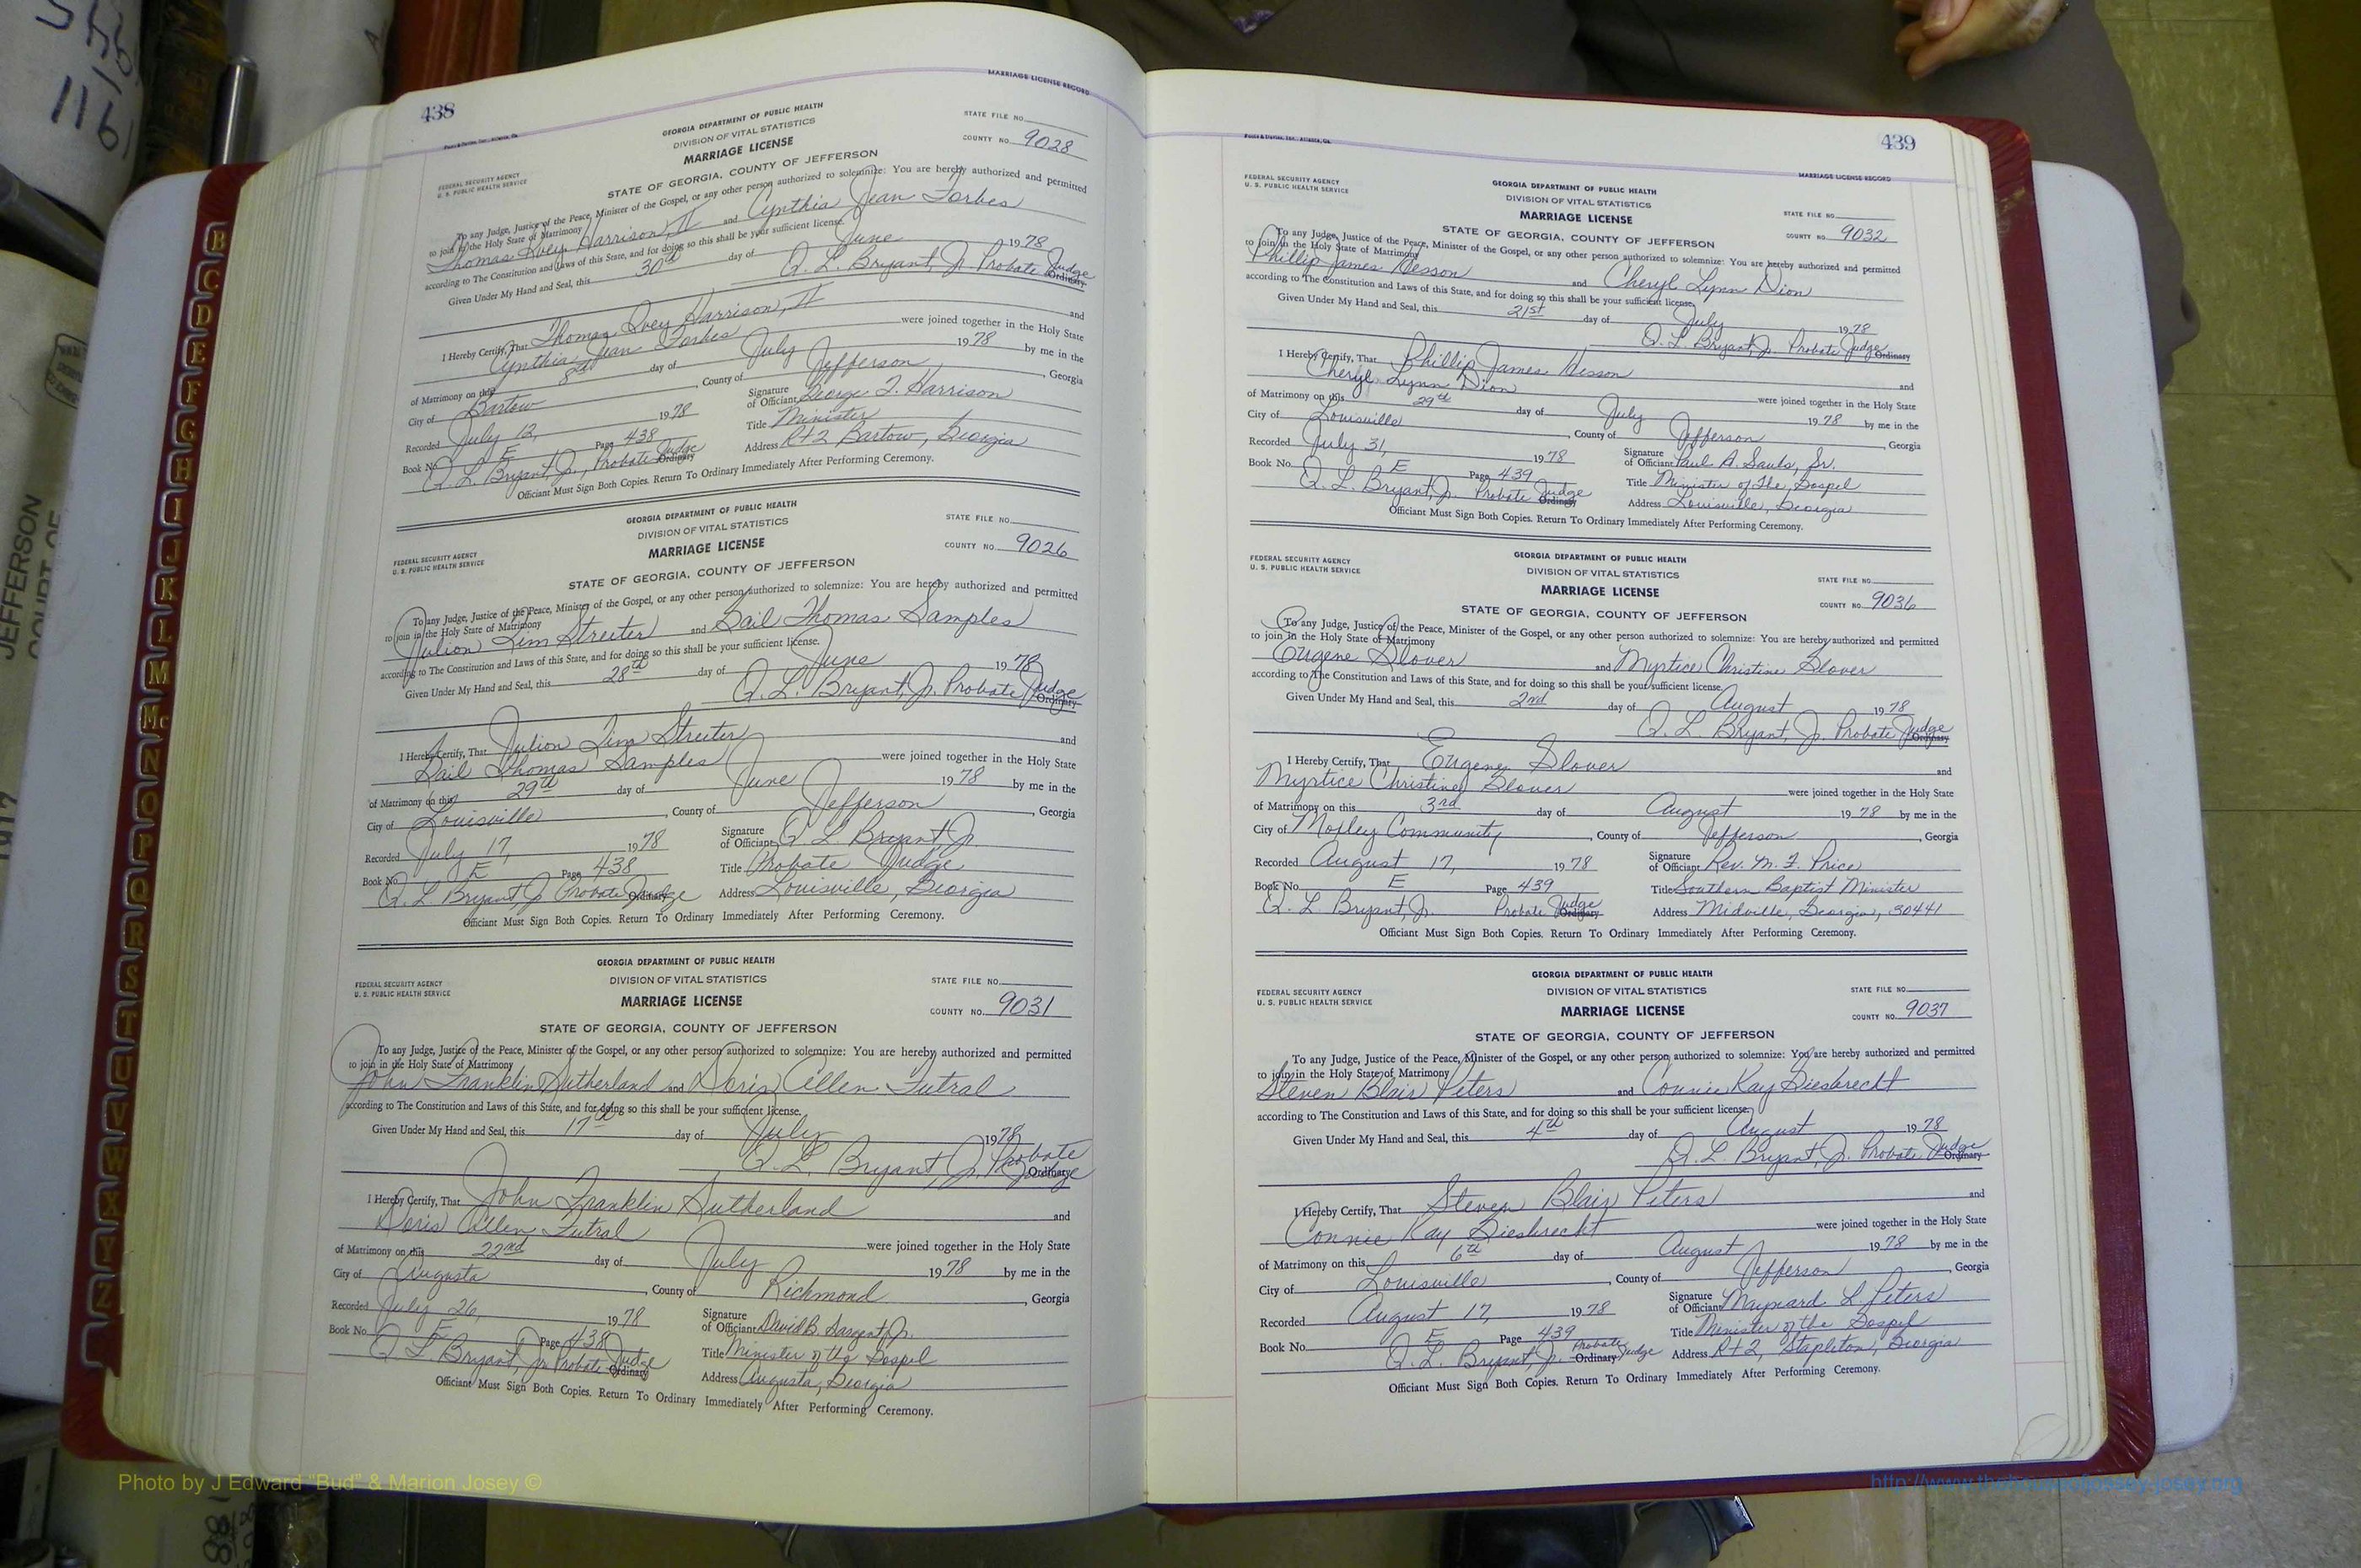 438
MARRIAGE LICENSE RECORD
GEORGIA DEPARTMENT OF PUBLIC HEALTH
DIVISION OF VITAL STATISTICS
MARRIAGE LICENSE
STATE OF GEORGIA, COUNTY OF JEFFERSON
FEDERAL SECURITY AGENCY
U. S. PUBLIC HEALTH SERVICE
STATE FILE NO.
COUNTY NO. 9028
To any Judge, Justice of the Peace, Minister of the Gospel, or any other person authorized to solemnize: You are hereby authorized and permitted
to join in the Holy State of Matrimony
Thomas Ivey Harrison, II and Cynthia Jean Forbes
according to The Constitution and Laws of this State, and for doing so this shall be your sufficient license.
Given Under My Hand and Seal, this 30th day of June 1978
Q. L. Bryant, Jr. Probate Judge Ordinary
I Hereby Certify, That Thomas Ivey Harrison, II and
Cynthia Jean Forbes were joined together in the Holy State
of Matrimony on this 8th day of July 1978 by me in the
City of Bartow, County of Jefferson, Georgia
Recorded July 12, 1978 Signature of Officiant George T. Harrison
Book No. E Page 438 Title Minister
Q. L. Bryant, Jr., Probate Judge Ordinary Address Rt 2 Bartow, Georgia
Officiant Must Sign Both Copies. Return To Ordinary Immediately After Performing Ceremony.
GEORGIA DEPARTMENT OF PUBLIC HEALTH
DIVISION OF VITAL STATISTICS
MARRIAGE LICENSE
STATE OF GEORGIA, COUNTY OF JEFFERSON
FEDERAL SECURITY AGENCY
U. S. PUBLIC HEALTH SERVICE
STATE FILE NO.
COUNTY NO. 9026
To any Judge, Justice of the Peace, Minister of the Gospel, or any other person authorized to solemnize: You are hereby authorized and permitted
to join in the Holy State of Matrimony
Julion Tim Streeter and Gail Thomas Samples
according to The Constitution and Laws of this State, and for doing so this shall be your sufficient license.
Given Under My Hand and Seal, this 28th day of June 1978
Q. L. Bryant, Jr. Probate Judge Ordinary
I Hereby Certify, That Julion Tim Streeter and
Gail Thomas Samples were joined together in the Holy State
of Matrimony on this 29th day of June 1978 by me in the
City of Louisville, County of Jefferson, Georgia
Recorded July 17, 1978 Signature of Officiant Q. L. Bryant, Jr.
Book No. E Page 438 Title Probate Judge
Q. L. Bryant, Jr. Probate Judge Ordinary Address Louisville, Georgia
Officiant Must Sign Both Copies. Return To Ordinary Immediately After Performing Ceremony.
GEORGIA DEPARTMENT OF PUBLIC HEALTH
DIVISION OF VITAL STATISTICS
MARRIAGE LICENSE
STATE OF GEORGIA, COUNTY OF JEFFERSON
FEDERAL SECURITY AGENCY
U. S. PUBLIC HEALTH SERVICE
STATE FILE NO.
COUNTY NO. 9031
To any Judge, Justice of the Peace, Minister of the Gospel, or any other person authorized to solemnize: You are hereby authorized and permitted
to join in the Holy State of Matrimony
John Franklin Sutherland and Doris Allen Futral
according to The Constitution and Laws of this State, and for doing so this shall be your sufficient license.
Given Under My Hand and Seal, this 17th day of July 1978
Q. L. Bryant, Jr. Probate Judge Ordinary
I Hereby Certify, That John Franklin Sutherland and
Doris Allen Futral were joined together in the Holy State
of Matrimony on this 22nd day of July 1978 by me in the
City of Augusta, County of Richmond, Georgia
Recorded July 26, 1978 Signature of Officiant David B. Sargent, Jr.
Book No. E Page 438 Title Minister of the Gospel
Q. L. Bryant, Jr. Probate Judge Ordinary Address Augusta, Georgia
Officiant Must Sign Both Copies. Return To Ordinary Immediately After Performing Ceremony.
439
MARRIAGE LICENSE RECORD
FEDERAL SECURITY AGENCY
U. S. PUBLIC HEALTH SERVICE
GEORGIA DEPARTMENT OF PUBLIC HEALTH
DIVISION OF VITAL STATISTICS
MARRIAGE LICENSE
STATE OF GEORGIA, COUNTY OF JEFFERSON
STATE FILE NO.
COUNTY NO. 9032
To any Judge, Justice of the Peace, Minister of the Gospel, or any other person authorized to solemnize: You are hereby authorized and permitted
to join in the Holy State of Matrimony
Phillip James and Cheryl Lynn Dion
according to The Constitution and Laws of this State, and for doing so this shall be your sufficient license.
Given Under My Hand and Seal, this 21st day of July 1978
Q. L. Bryant, Jr. Probate Judge Ordinary
I Hereby Certify, That Phillip James and
Cheryl Lynn Dion were joined together in the Holy State
of Matrimony on this 29th day of July 1978 by me in the
City of Louisville, County of Jefferson, Georgia
Recorded July 31, 1978 Signature of Officiant Paul A. Sauls, Sr.
Book No. E Page 439 Title Minister of The Gospel
Q. L. Bryant, Jr. Probate Judge Ordinary Address Louisville, Georgia
Officiant Must Sign Both Copies. Return To Ordinary Immediately After Performing Ceremony.
GEORGIA DEPARTMENT OF PUBLIC HEALTH
DIVISION OF VITAL STATISTICS
MARRIAGE LICENSE
STATE OF GEORGIA, COUNTY OF JEFFERSON
FEDERAL SECURITY AGENCY
U. S. PUBLIC HEALTH SERVICE
STATE FILE NO.
COUNTY NO. 9036
To any Judge, Justice of the Peace, Minister of the Gospel, or any other person authorized to solemnize: You are hereby authorized and permitted
to join in the Holy State of Matrimony
Eugene Glover and Myrtice Christine Glover
according to The Constitution and Laws of this State, and for doing so this shall be your sufficient license.
Given Under My Hand and Seal, this 2nd day of August 1978
Q. L. Bryant, Jr. Probate Judge Ordinary
I Hereby Certify, That Eugene Glover and
Myrtice Christine Glover were joined together in the Holy State
of Matrimony on this 3rd day of August 1978 by me in the
City of Moxley Community, County of Jefferson, Georgia
Recorded August 17, 1978 Signature of Officiant Rev. M. F. Price
Book No. E Page 439 Title Southern Baptist Minister
Q. L. Bryant, Jr. Probate Judge Ordinary Address Midville, Georgia, 30441
Officiant Must Sign Both Copies. Return To Ordinary Immediately After Performing Ceremony.
GEORGIA DEPARTMENT OF PUBLIC HEALTH
DIVISION OF VITAL STATISTICS
MARRIAGE LICENSE
STATE OF GEORGIA, COUNTY OF JEFFERSON
FEDERAL SECURITY AGENCY
U. S. PUBLIC HEALTH SERVICE
STATE FILE NO.
COUNTY NO. 9037
To any Judge, Justice of the Peace, Minister of the Gospel, or any other person authorized to solemnize: You are hereby authorized and permitted
to join in the Holy State of Matrimony
Steven Blair Peters and Connie Kay Giesbrecht
according to The Constitution and Laws of this State, and for doing so this shall be your sufficient license.
Given Under My Hand and Seal, this 4th day of August 1978
Q. L. Bryant, Jr. Probate Judge Ordinary
I Hereby Certify, That Steven Blair Peters and
Connie Kay Giesbrecht were joined together in the Holy State
of Matrimony on this 6th day of August 1978 by me in the
City of Louisville, County of Jefferson, Georgia
Recorded August 17, 1978 Signature of Officiant Maynard L. Peters
Book No. E Page 439 Title Minister of the Gospel
Q. L. Bryant, Jr. Probate Judge Ordinary Address Rt 2, Stapleton, Georgia
Officiant Must Sign Both Copies. Return To Ordinary Immediately After Performing Ceremony.
B
C
D
E
F
G
H
I
J
K
L
M
Mc
N
O
P
Q
R
S
T
U
V
W
X
Y
Z
JEFFERSON
COURT OF
Photo by J Edward "Bud" & Marion Josey ©